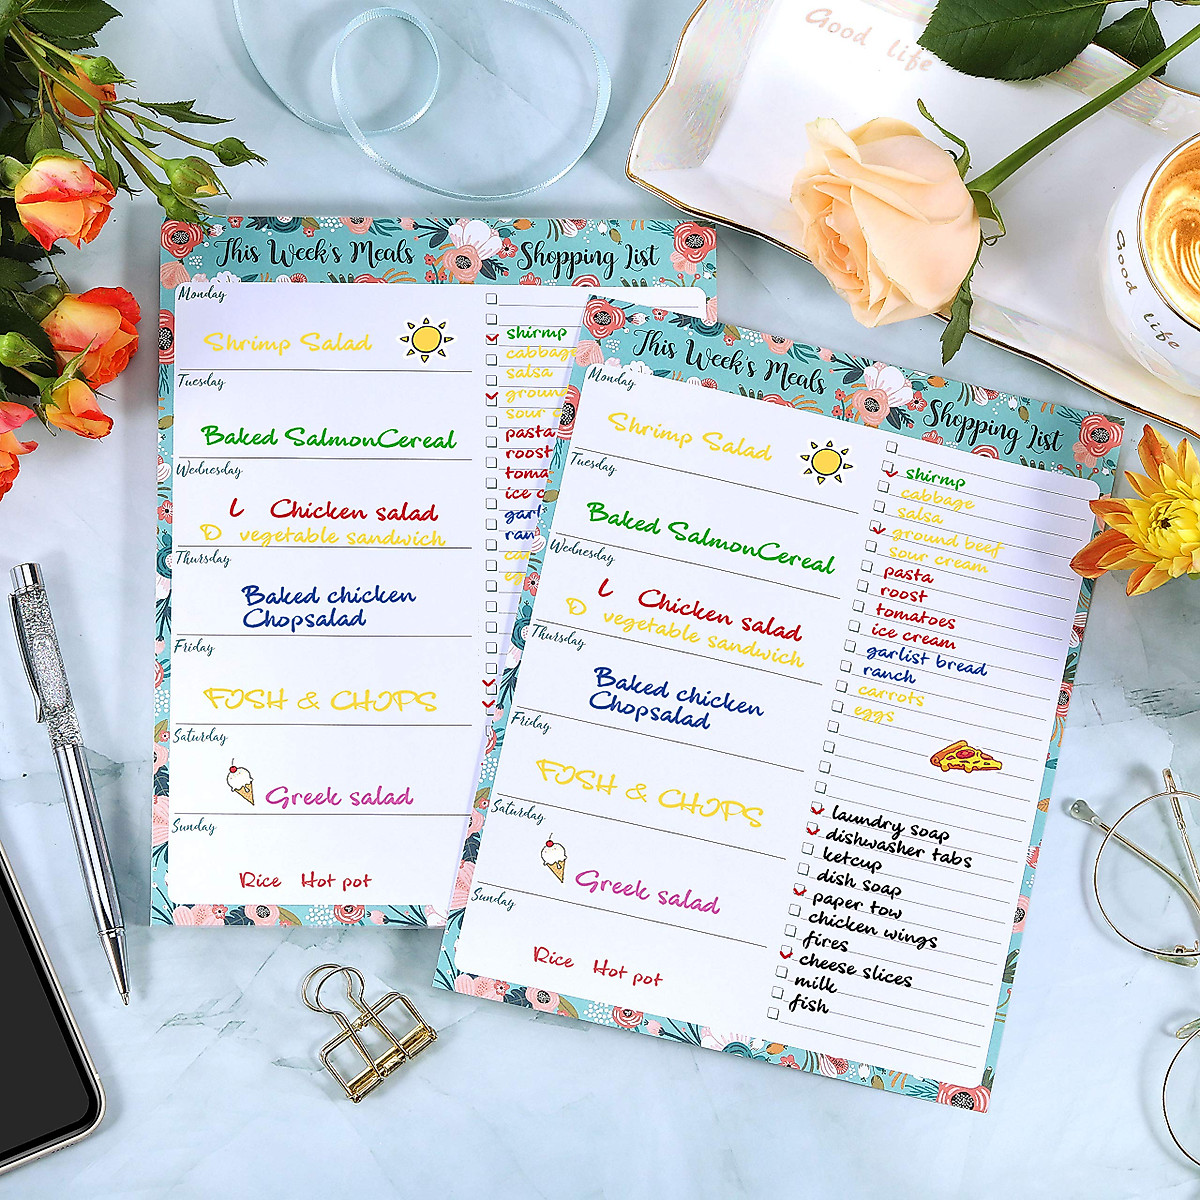 Good life
This Week's Meals
Shopping List
Monday
Shrimp Salad
Tuesday
Baked SalmonCereal
Wednesday
L Chicken salad
D vegetable sandwich
Thursday
Baked chicken
Chopsalad
Friday
FISH & CHIPS
Saturday
Greek salad
Sunday
Rice Hot pot
shirmp
cabbage
salsa
ground
sour
pasta
roost
toma
ice c
garl
ran
This Week's Meals
Shopping List
Monday
Shrimp Salad
Tuesday
Baked SalmonCereal
Wednesday
L Chicken salad
D vegetable sandwich
Thursday
Baked chicken
Chopsalad
Friday
FISH & CHIPS
Saturday
Greek salad
Sunday
Rice Hot pot
shirmp
cabbage
salsa
ground beef
sour cream
pasta
roost
tomatoes
ice cream
garlist bread
ranch
carrots
eggs
laundry soap
dishwasher tabs
ketcup
dish soap
paper tow
chicken wings
fires
cheese slices
milk
fish
Good life